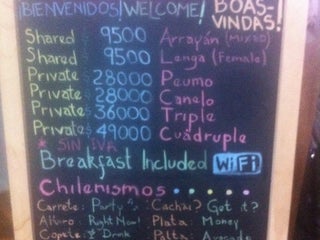 ¡BIENVENIDOS! WELCOME! BOAS-VINDAS!
Shared 9500 Arrayán (MIXED)
Shared 9500 Lenga (Female)
Private 28000 Peumo
Private 28000 Canelo
Private 36000 Triple
Private 49000 Cuádruple
* SIN IVA
Breakfast Included WiFi
Chilenismos . . . . .
Carrete: Party Cachai? Got it?
Altiro: Right Now! Plata: Money
Copete: Drink Palta: Avocado